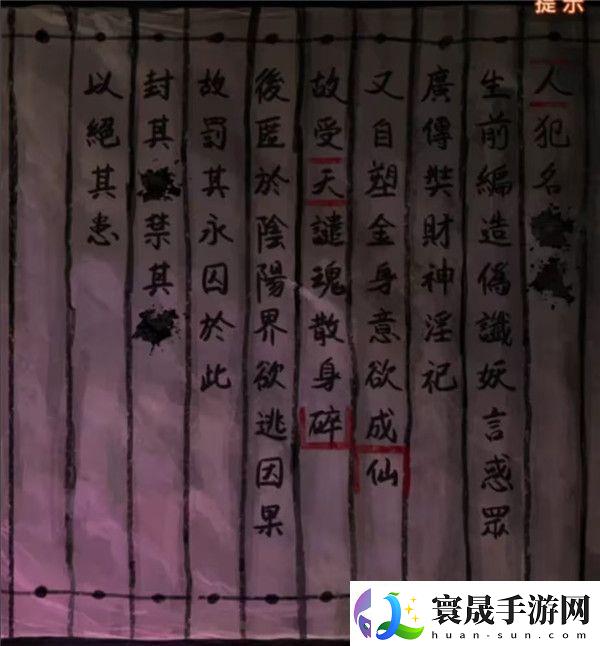 提示
人犯名
生前編造偽讖妖言惑眾
廣傳奘財神淫祀
又自塑金身意欲成仙
故受天譴魂散身碎
後匿於陰陽界欲逃因果
故罰其永囚於此
封其禁其
以絕其患
寰晟手游网
huan-sun.com